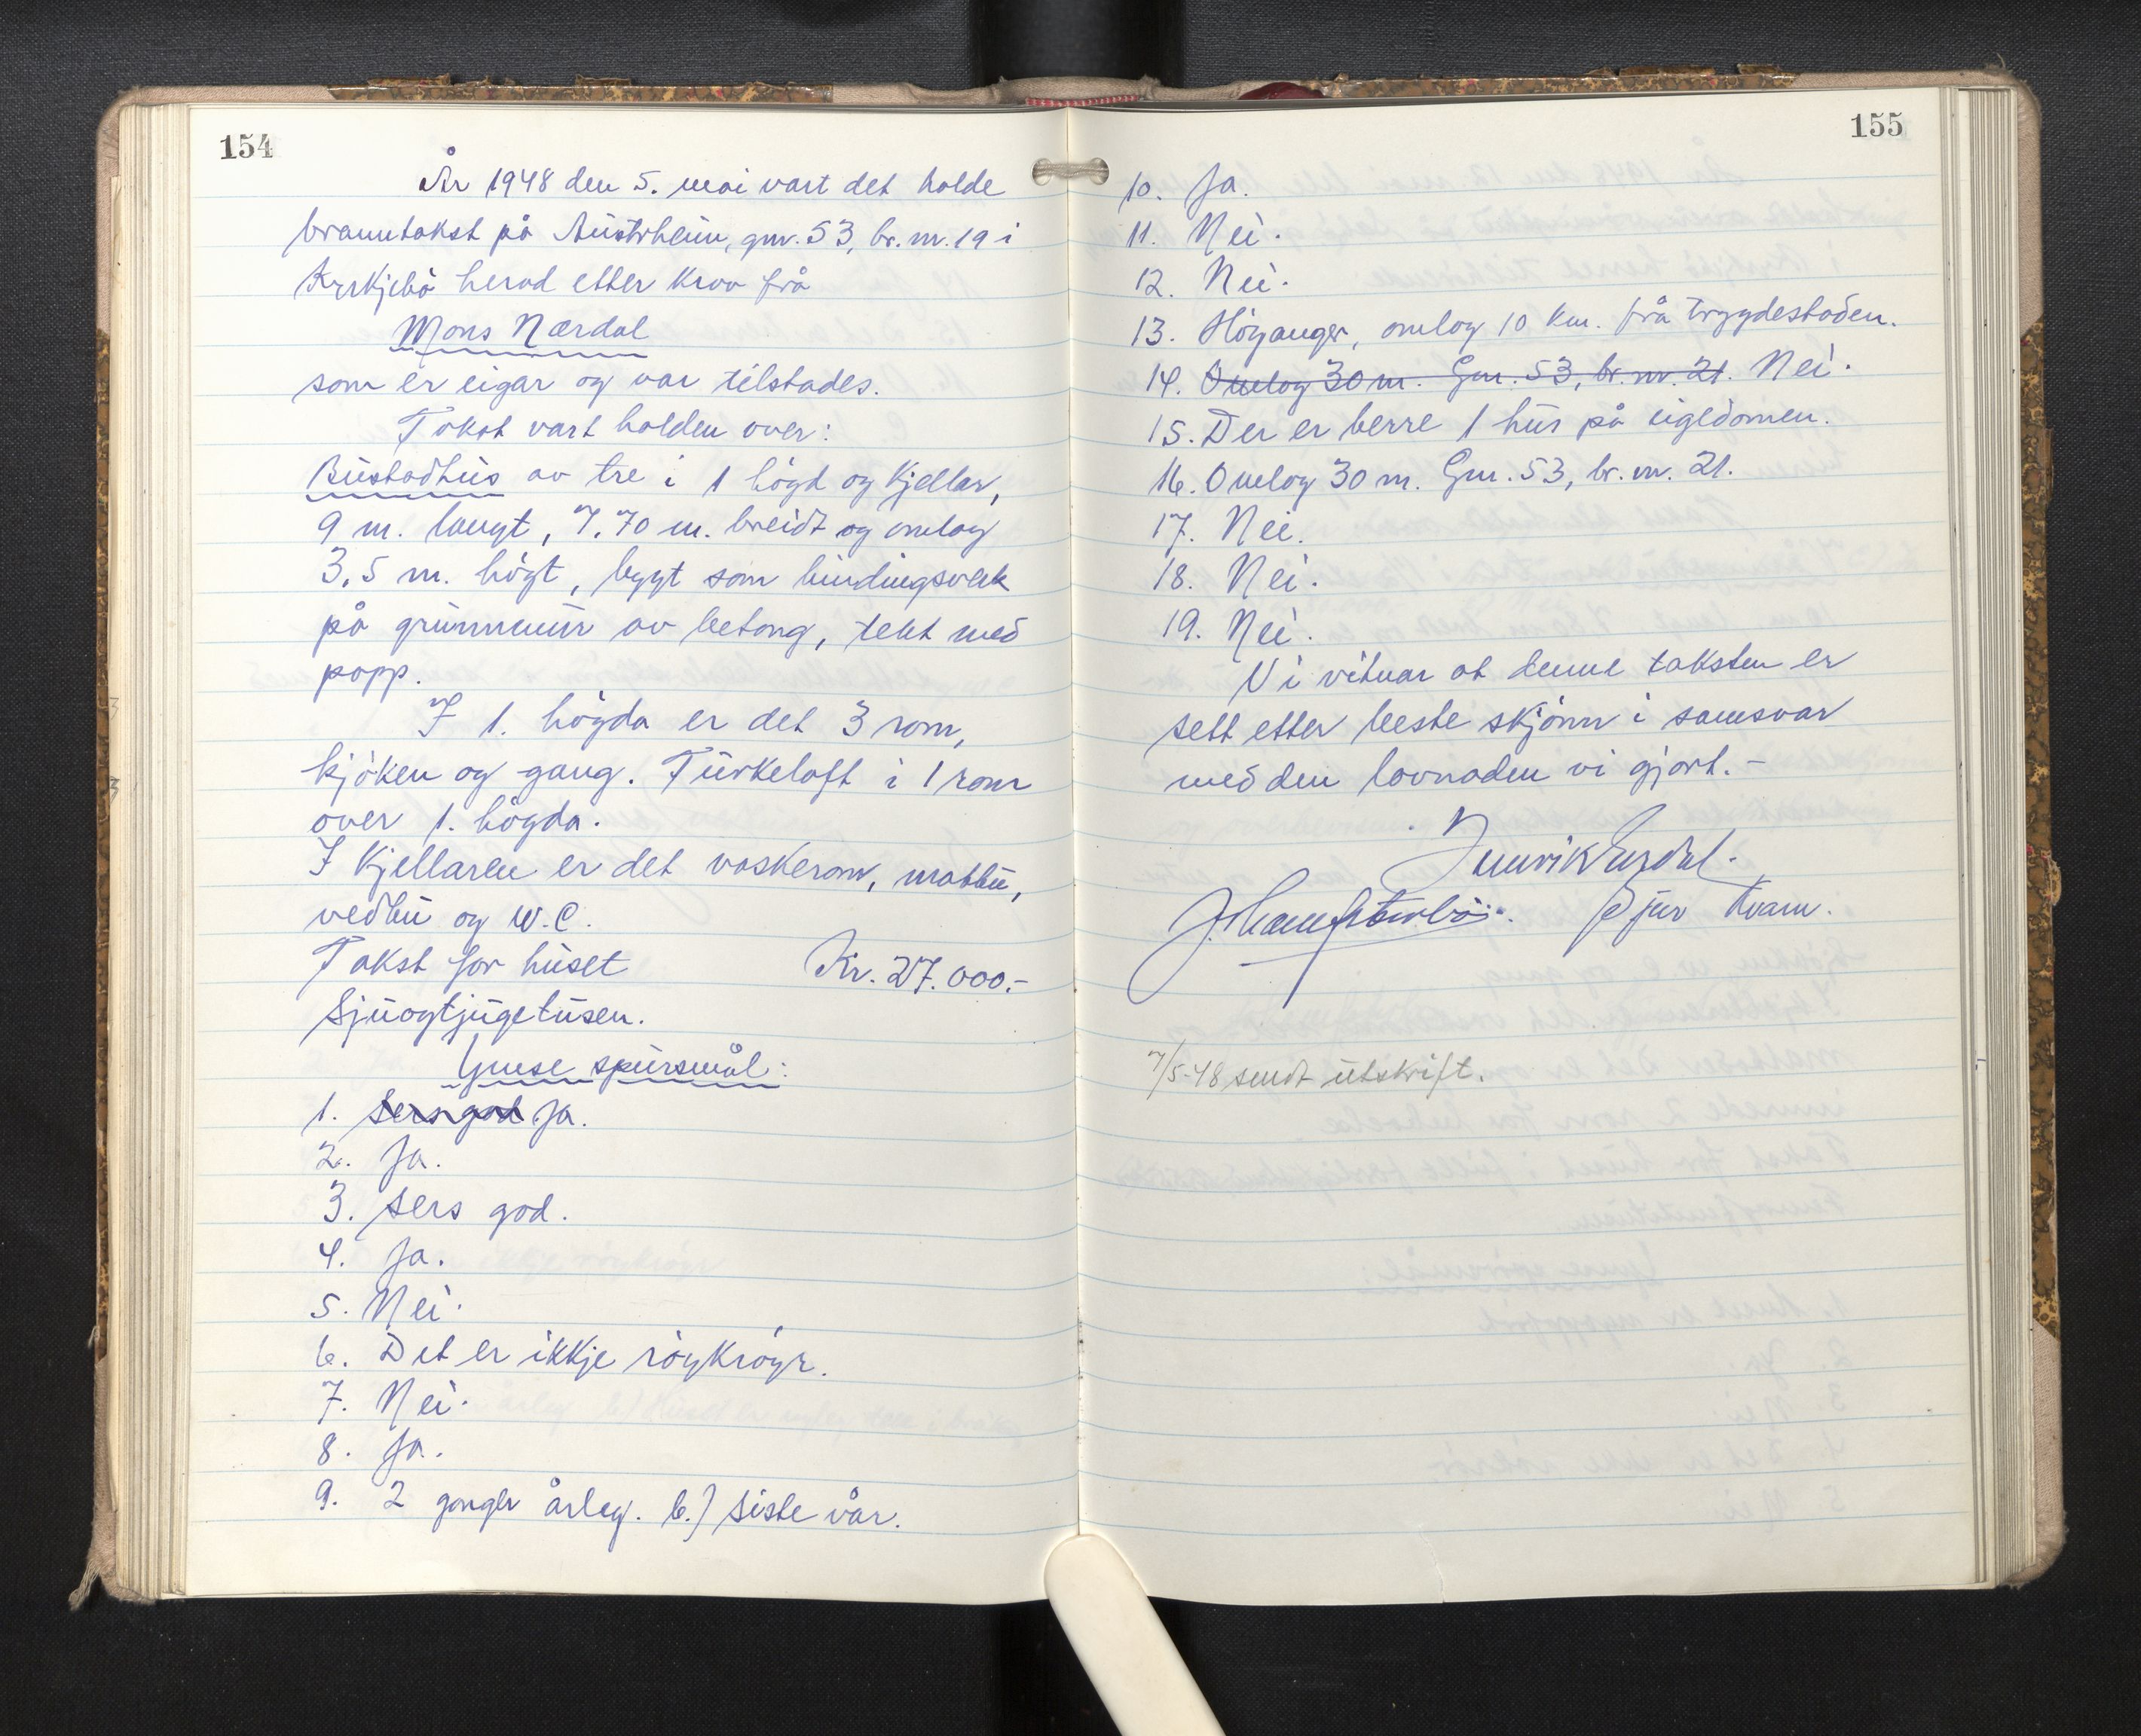 154
År 1948 den 5. mai vart det halde
branntakst på Austrheim, gnr. 53, br. nr. 19 i
Kyrkjebø herad etter krav frå
Mons Nærdal
som er eigar og var tilstades.
Takst vart halden over:
Bustadhus av tre i 1 högd og kjellar,
9 m. langt, 7.70 m. breidt og omlag
3,5 m. högt, bygt som bindingsverk
på grunnmur av betong, tekt med
papp.
I 1. högda er det 3 rom,
kjöken og gang. Turkeloft i 1 rom
over 1. högda.
I kjellaren er det vaskerom, matbu,
vedbu og W.C.
Takst for huset Kr. 27.000.-
Sjuogtjugetusen.
Ymse spursmål:
1. Sers god Ja.
2. Ja.
3. Sers god.
4. Ja.
5. Nei.
6. Det er ikkje röykröyr.
7. Nei.
8. Ja.
9. 2 gonger årleg. b.) Siste vår.
155
10. Ja.
11. Nei.
12. Nei.
13. Höyanger, omlag 10 km. frå trygdestaden.
14. Omlag 30 m. Gnr. 53, br. nr. 21. Nei.
15. Der er berre 1 hus på eigedomen.
16. Omlag 30 m. Gnr. 53, br. nr. 21.
17. Nei.
18. Nei.
19. Nei.
Vi vitnar at denne taksten er
sett etter beste skjönn i samsvar
med den lovnaden vi gjort.-
Kvam.
7/5-48 sendt utskrift.